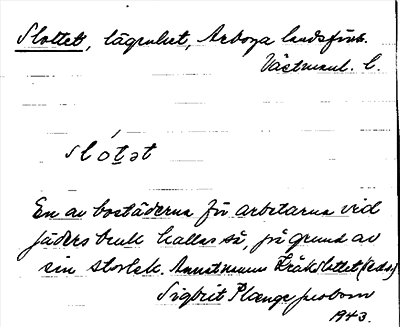 Slottet, lägenhet, Arboga landsförs.
Västmanl. l.
slót̠ət
En av bostäderna för arbetarna vid
Jäders bruk kallas så, på grund av
sin storlek. Annat namn Kråkslottet
Sigbrit Plænge
1943.